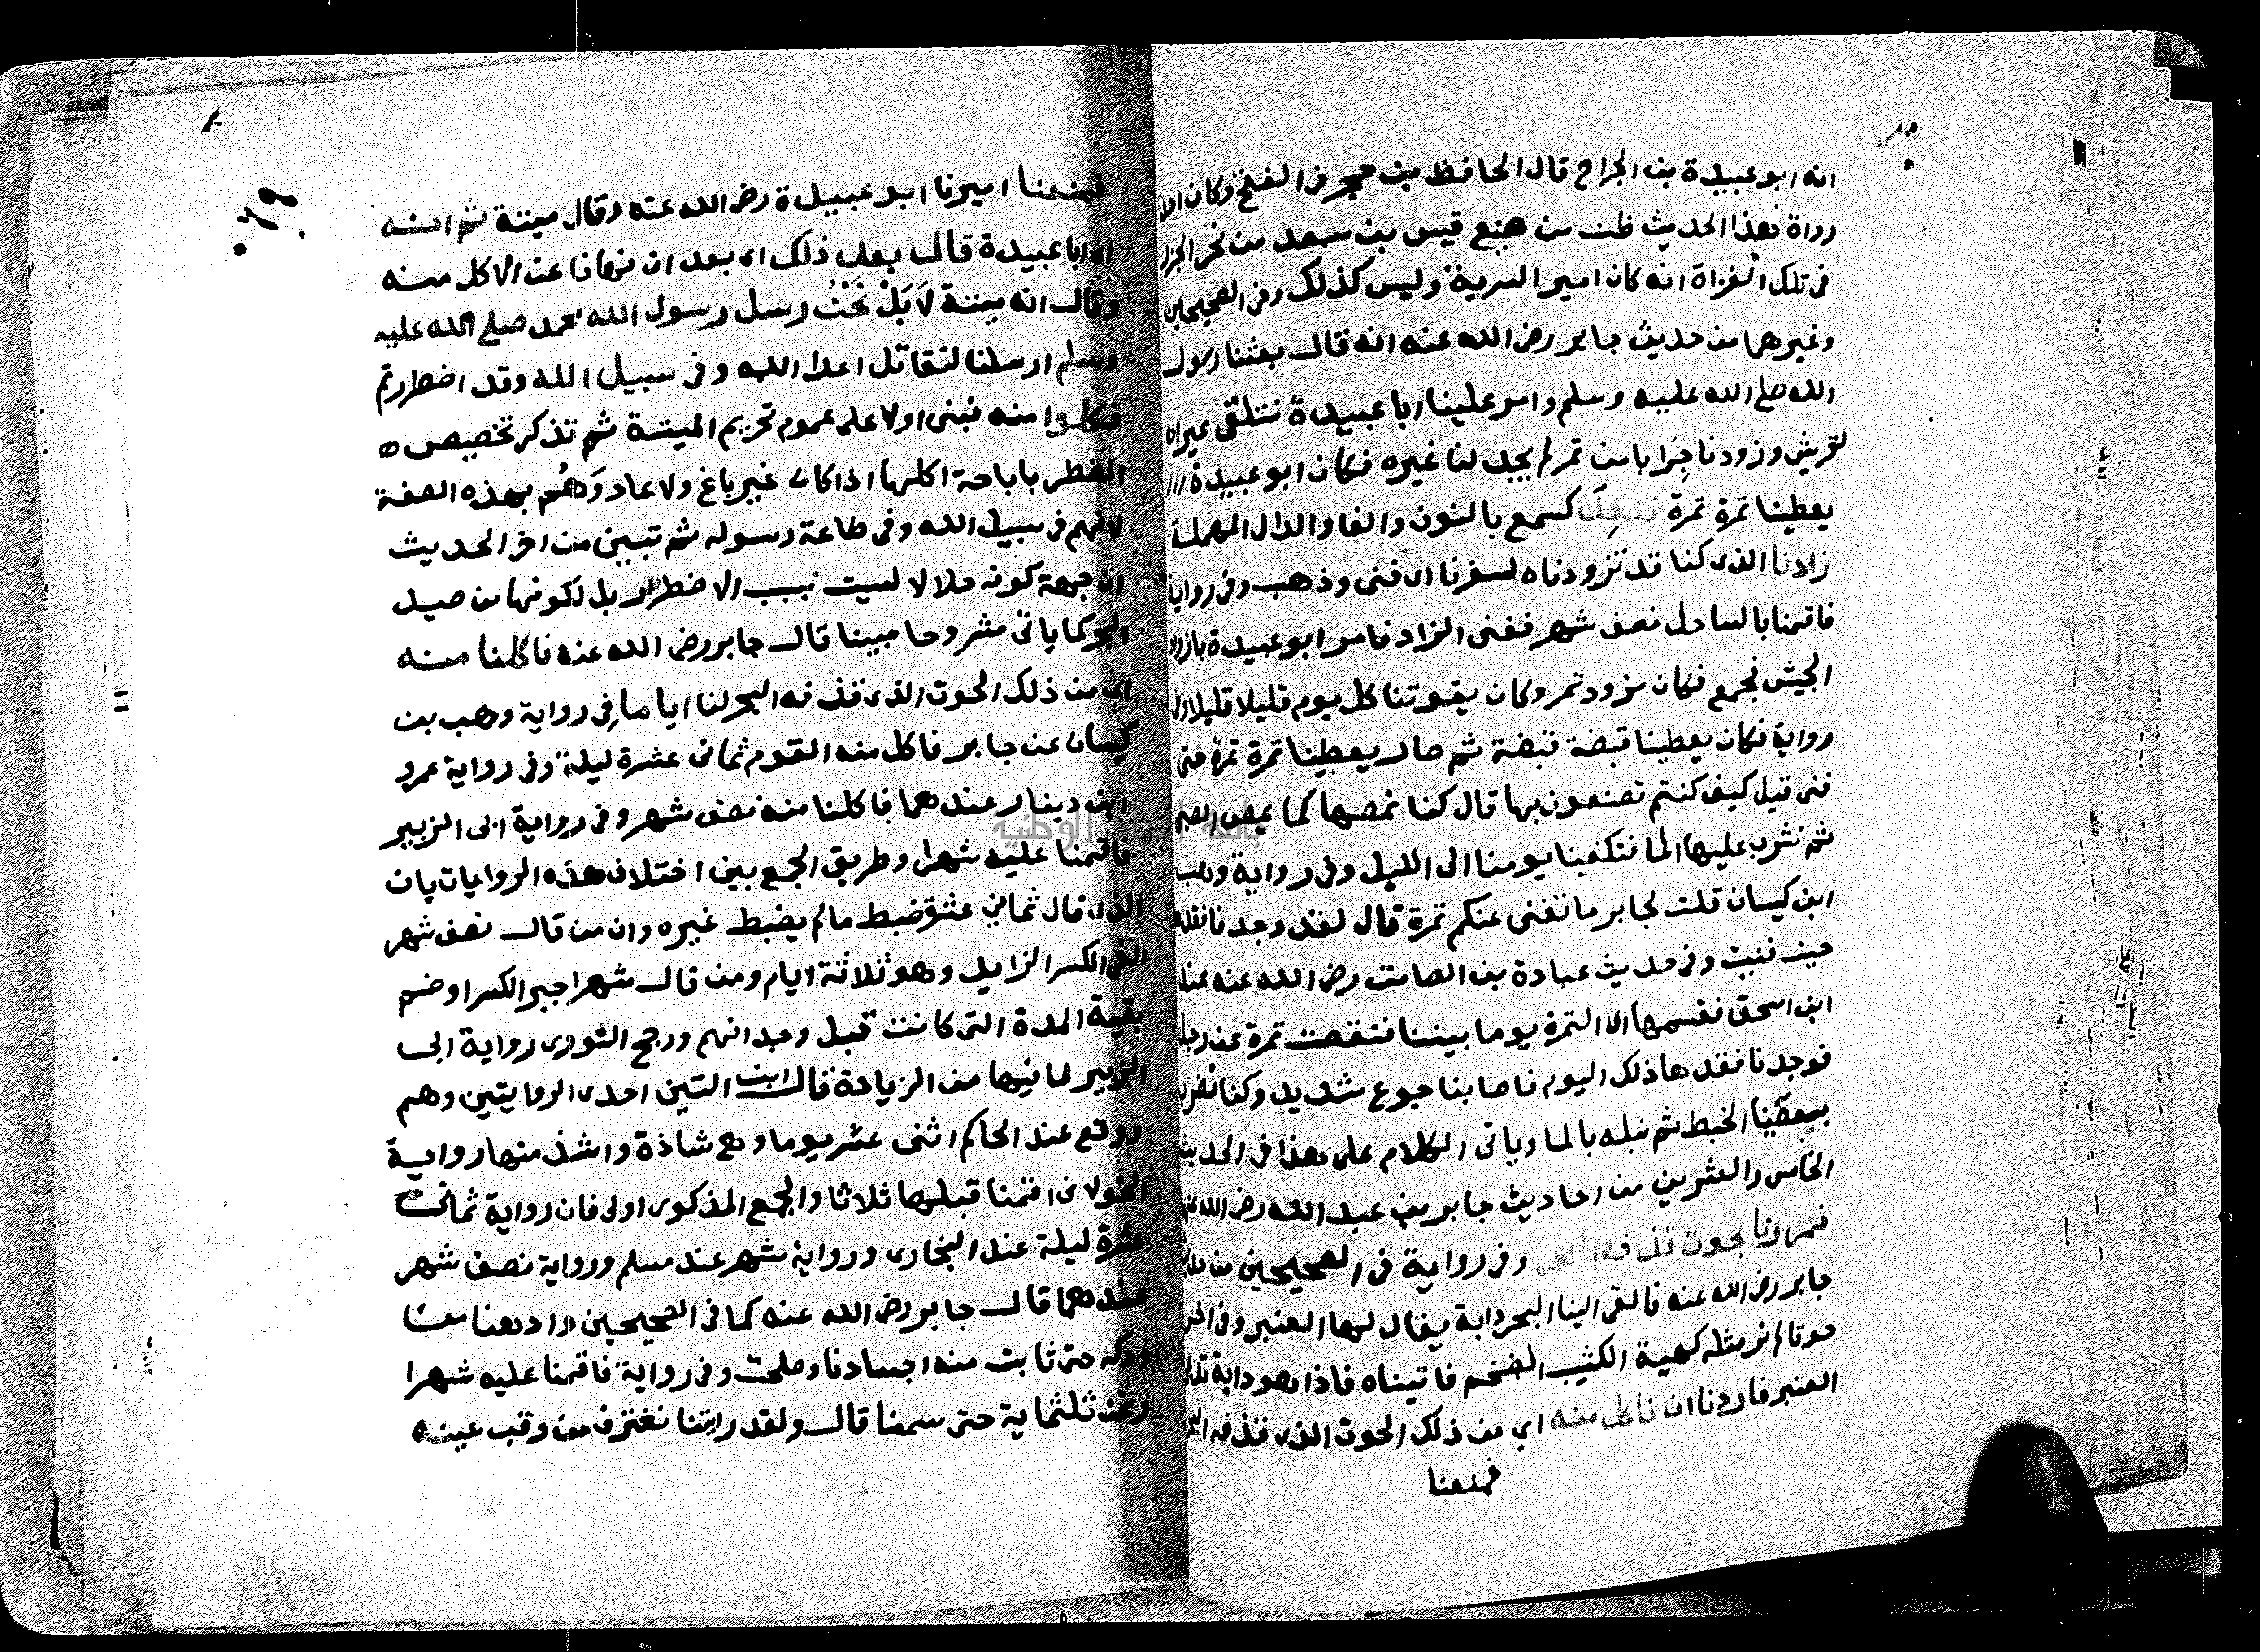 انه ابو عبيدة بن الجراح قال الحافظ بن حجر في الفتح وكان احد
رواة هذا الحديث ظن من صنع قيس بن سعد من نحر الجزر
في تلك الغزاة انه كان امير السرية وليس كذلك وفي الصحيحين
وغيرهما من حديث جابر رضي الله عنه انه قال بعثنا رسول
الله صلى الله عليه وسلم وامر علينا ابا عبيدة نتلقى عيرا
لقريش وزودنا جِرَابا من تمر لم يجد لنا غيره فكان ابو عبيدة
يعطينا تمرة تمرة فنفد كسمع بالنون والفا والدال المهملة
زادنا الذي كنا قد تزودناه لسفرنا اي فنى وذهب وفي رواية
فاقمنا بالساحل نصف شهر ففنى الزاد فامر ابو عبيدة بازواد
الجيش فجمع فكان مزود تمر وكان يقوتنا كل يوم قليلا قليلا وفي
رواية فكان يعطينا قبضة قبضة ثم صار يعطينا تمرة تمرة حتى
فنى قيل كيف كنتم تصنعون بها قال كنا نمصها كما يمص الصبي
ثم نشرب عليها الما فتكفينا يومنا الى الليل وفي رواية وهب
ابن كيسان قلت لجابر ما تغنى عنكم تمرة قال لقد وجدنا فقدها
حين فنيت وفي حديث عبادة بن الصامت رضي الله عنه عند
ابن اسحق فقسمها اي التمرة يوما بيننا فنقصت تمرة عن رجل
فوجدنا فقدها ذلك اليوم فاصابنا جوع شديد وكنا نضرب
بِعِصِيِّنا الخبط ثم نبله بالما وياتي الكلام على هذا في الحديث
الخامس والعشرين من احاديث جابر بن عبد الله رضي الله عنهما
فمررنا بحوت قذفه البحر وفي رواية في الصحيحين من حديث
جابر رضي الله عنه فالقى الينا البحر دابة يقال لها العنبر وفي
حوتا لم نر مثله كهية الكثيب الضخم فاتيناه فاذا هو دابة تدعى
العنبر فاردنا ان ناكل منه اي من ذلك الحوت الذي قذفه البحر
فمنعنا
٠٦٩
فمنعنا اميرنا ابو عبيدة رضي الله عنه وقال ميتة ثم انه
اي ابا عبيدة قال بعد ذلك اي بعد ان نهانا عن الاكل منه
وقال انه ميتة لَا بَلْ نَحْنُ رسل رسول الله محمد صلى الله عليه
وسلم ارسلنا لنقاتل اعدا الله وفي سبيل الله وقد اضطررتم
فكلوا منه فبنى اولا على عموم تحريم الميتة ثم تذكر تخصيص
المضطر باباحة اكلها اذا كان غير باغ ولا عاد وَهُم بهذه الصفة
لانهم في سبيل الله وفي طاعة رسوله ثم تبين من اخر الحديث
ان جهة كونه حلالا ليست بسبب الاضطرار بل لكونها من صيد
البحر كما ياتي مشروحا مبينا قال جابر رضي الله عنه فاكلنا منه
اي من ذلك الحوت الذي قذفه البحر لنا اياما في رواية وهب بن
كيسان عن جابر فاكل منه القوم ثماني عشرة ليلة وفي رواية عمرو
ابن دينار عندهما فاكلنا منه نصف شهر وفي رواية ابي الزبير
فاقمنا عليه شهرا وطريق الجمع بين اختلاف هذه الروايات بان
الذي قال ثماني عشرة ضبط مالم يضبط غيره وان من قال نصف شهر
الغى الكسر الزايد وهو ثلاثة ايام ومن قال شهرا جبر الكسر او ضم
بقية المدة التي كانت قبل وجدانهم ورجح النووي رواية ابي
الزبير لما فيها من الزيادة قال ابن التين احدى الروايتين وهم
ووقع عند الحاكم اثنى عشر يوما وهي شاذة واشذ منها رواية
الخولاني اقمنا قبلها ثلاثا والجمع المذكور اولى فان رواية ثماني
عشرة ليلة عند البخاري ورواية شهر عند مسلم ورواية نصف شهر
عندهما قال جابر رضي الله عنه كما في الصحيحين وادهنا من
ودكه حتى ثابت منه اجسادنا وصلحت وفي رواية فاقمنا عليه شهرا
ونحن ثلثماية حتى سمنا قال ولقد رايتنا نغترف من وقب عينه